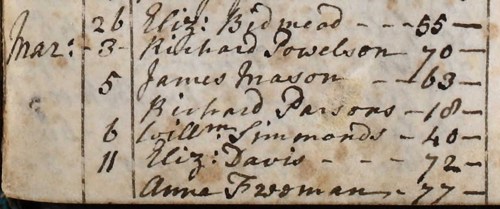 26 Eliz: Bidmead - - - 55 -
Mar: - 3 - Richard Powelson 70 -
5 James Mason - - 63 -
Richard Parsons - 18 -
6 Willm: Simmonds - 40 -
11 Eliz: Davis - - - 72 -
Anne Freeman - 77 -